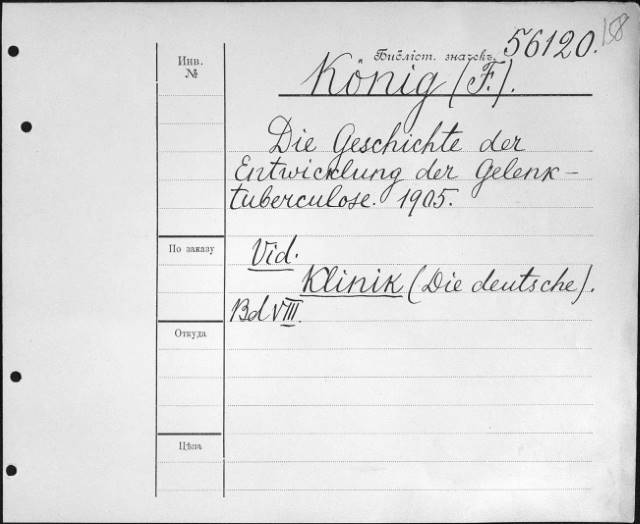 158
Библіот. значекъ 56120.
Инв.
№
König (F.).
Die Geschichte der
Entwicklung der Gelenk-
tuberculose. 1905.
По заказу
Vid.
Klinik (Die deutsche).
Bd VIII.
Откуда
Цѣна